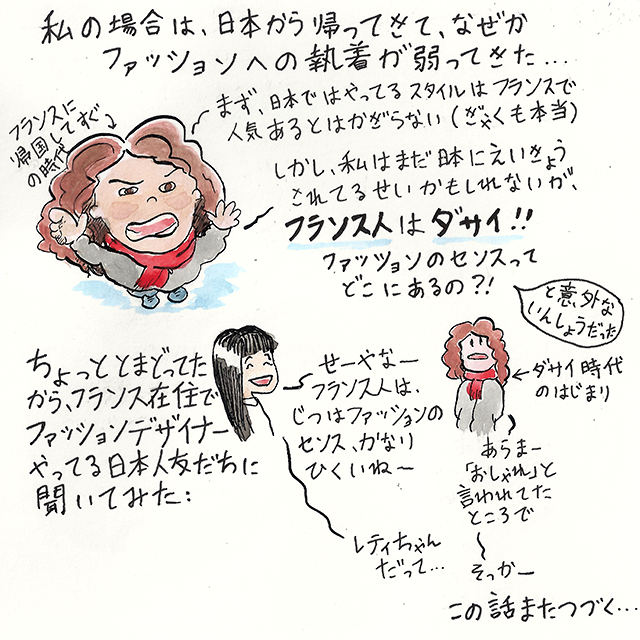 私の場合は、日本から帰ってきて、なぜか
ファッションへの執着が弱ってきた…
フランスに
帰国してすぐ
の時代
まず、日本ではやってるスタイルはフランスで
人気あるとはかぎらない(ぎゃくも本当)
しかし、私はまだ日本にえいきょう
されてるせいかもしれないが、
フランス人はダサイ!!
ファッションのセンスって
どこにあるの?!
と意外な
いんしょうだった
ちょっととまどってた
から、フランス在住で
ファッションデザイナー
やってる日本人友だちに
聞いてみた:
せーやなー
フランス人は、
じつはファッションの
センス、かなり
ひくいね〜
レティちゃん
だって…
ダサイ時代
のはじまり
あらまー
「おしゃれ」と
言われてた
ところで
そっかー
この話またつづく…